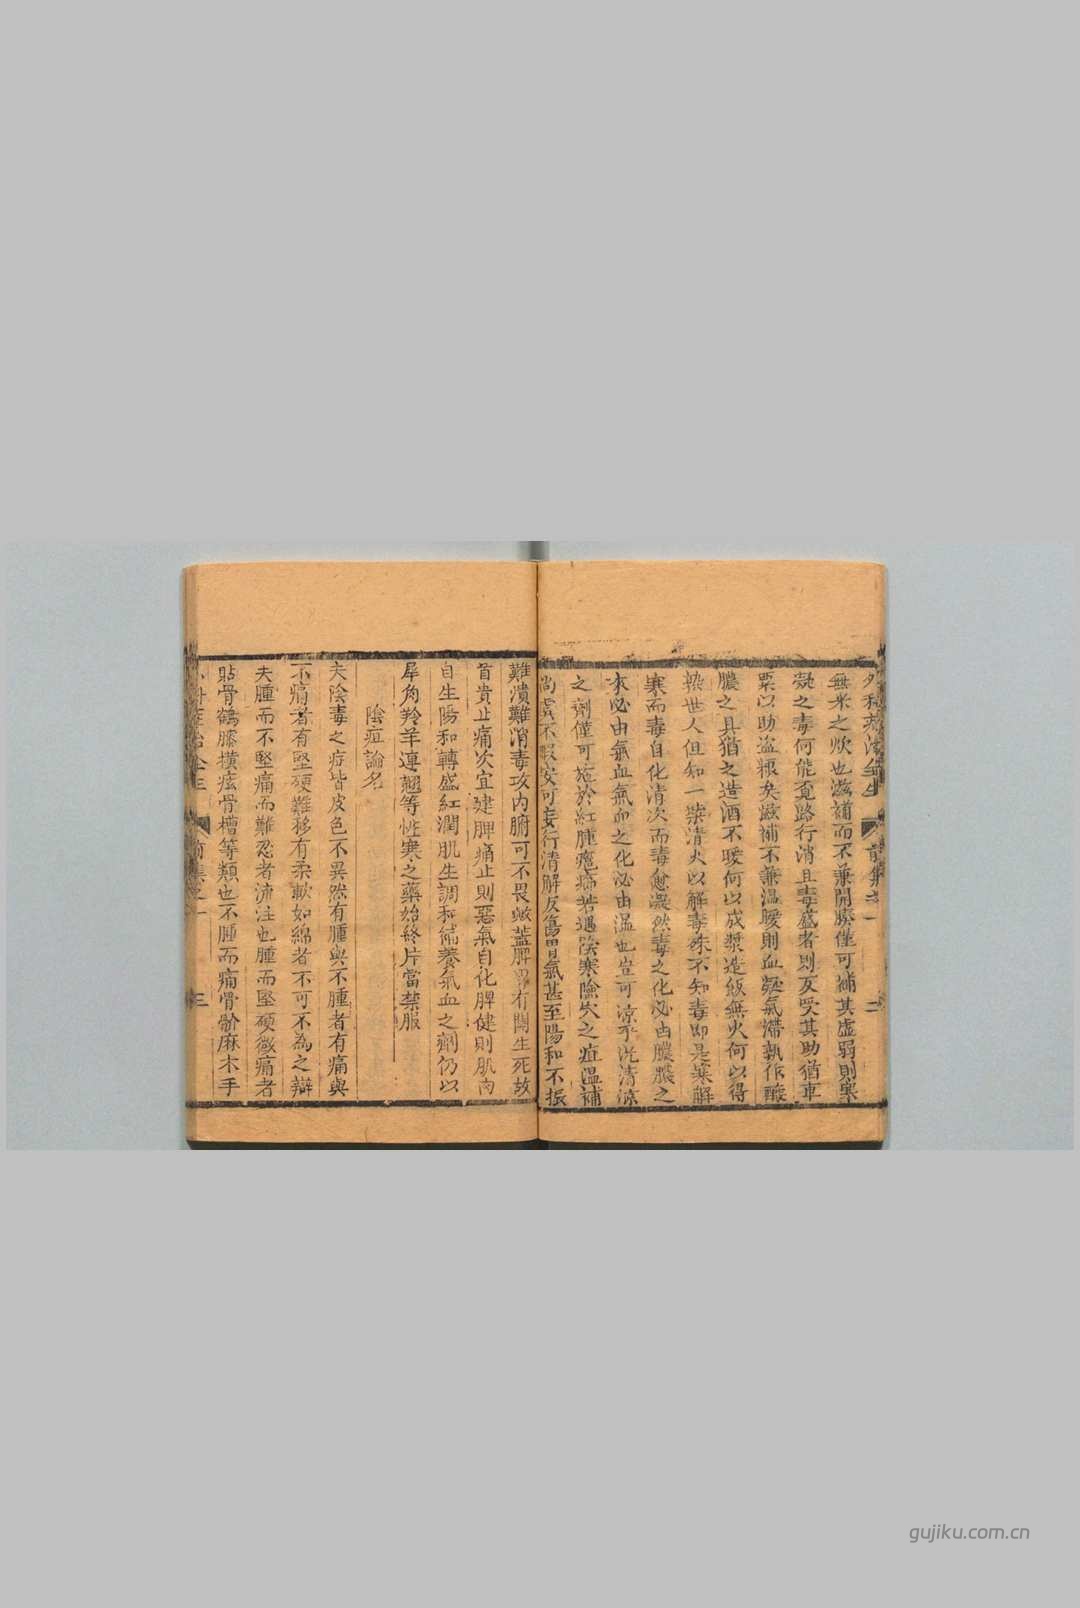 外科症治全生 前集之一 二
無米之炊也滋補而不兼開腠僅可補其虛弱則寒
凝之毒何能覓路行消且毒盛者則反受其助猶車
粟以助盜糧矣滋補不兼溫暖則血凝氣滯孰作釀
膿之具猶之造酒不暖何以成漿造飯無火何以得
熟世人但知一槩清火以解毒殊不知毒即是寒解
寒而毒自化清火而毒愈凝然毒之化必由膿膿之
來必由氣血氣血之化必由溫也豈可涼乎況清涼
之劑僅可施於紅腫癰癤若遇陰寒險穴之疽溫補
尚虞不暇安可妄行清解反傷胃氣甚至陽和不振
難潰難消毒攻內腑可不畏歟蓋脾胃有關生死故
首貴止痛次宜健脾痛止則惡氣自化脾健則肌肉
自生陽和轉盛紅潤肌生調和能養氣血之劑仍以
犀角羚羊連翹等性寒之藥始終片當禁服
陰症論名
夫陰毒之症皆皮色不異然有腫與不腫者有痛與
不痛者有堅硬難移有柔軟如綿者不可不為之辯
夫腫而不堅痛而難忍者流注也腫而堅硬微痛者
貼骨鶴膝橫痃骨槽等類也不腫而痛骨骱麻木手
外科症治全生 前集之一 三
gujiku.com.cn